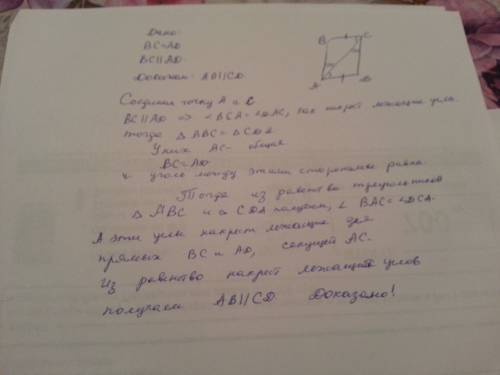 Дано:
BC=AD
BC||AD.
Доказать: AB||CD.
B C
A D
Соединим точку A и C
BC||AD => ∠BCA=∠DAC, как накрест лежащие углы.
тогда △ABC=△CDA
У них AC- общая
BC=AD
и угол между этими сторонами равна.
Тогда из равенства треугольников
△ABC и △CDA получаем, ∠BAC=∠DCA.
А эти углы накрест лежащие для
прямых BC и AD, секущей AC.
Из равенство накрест лежащий углов
получаем AB||CD. Доказано!